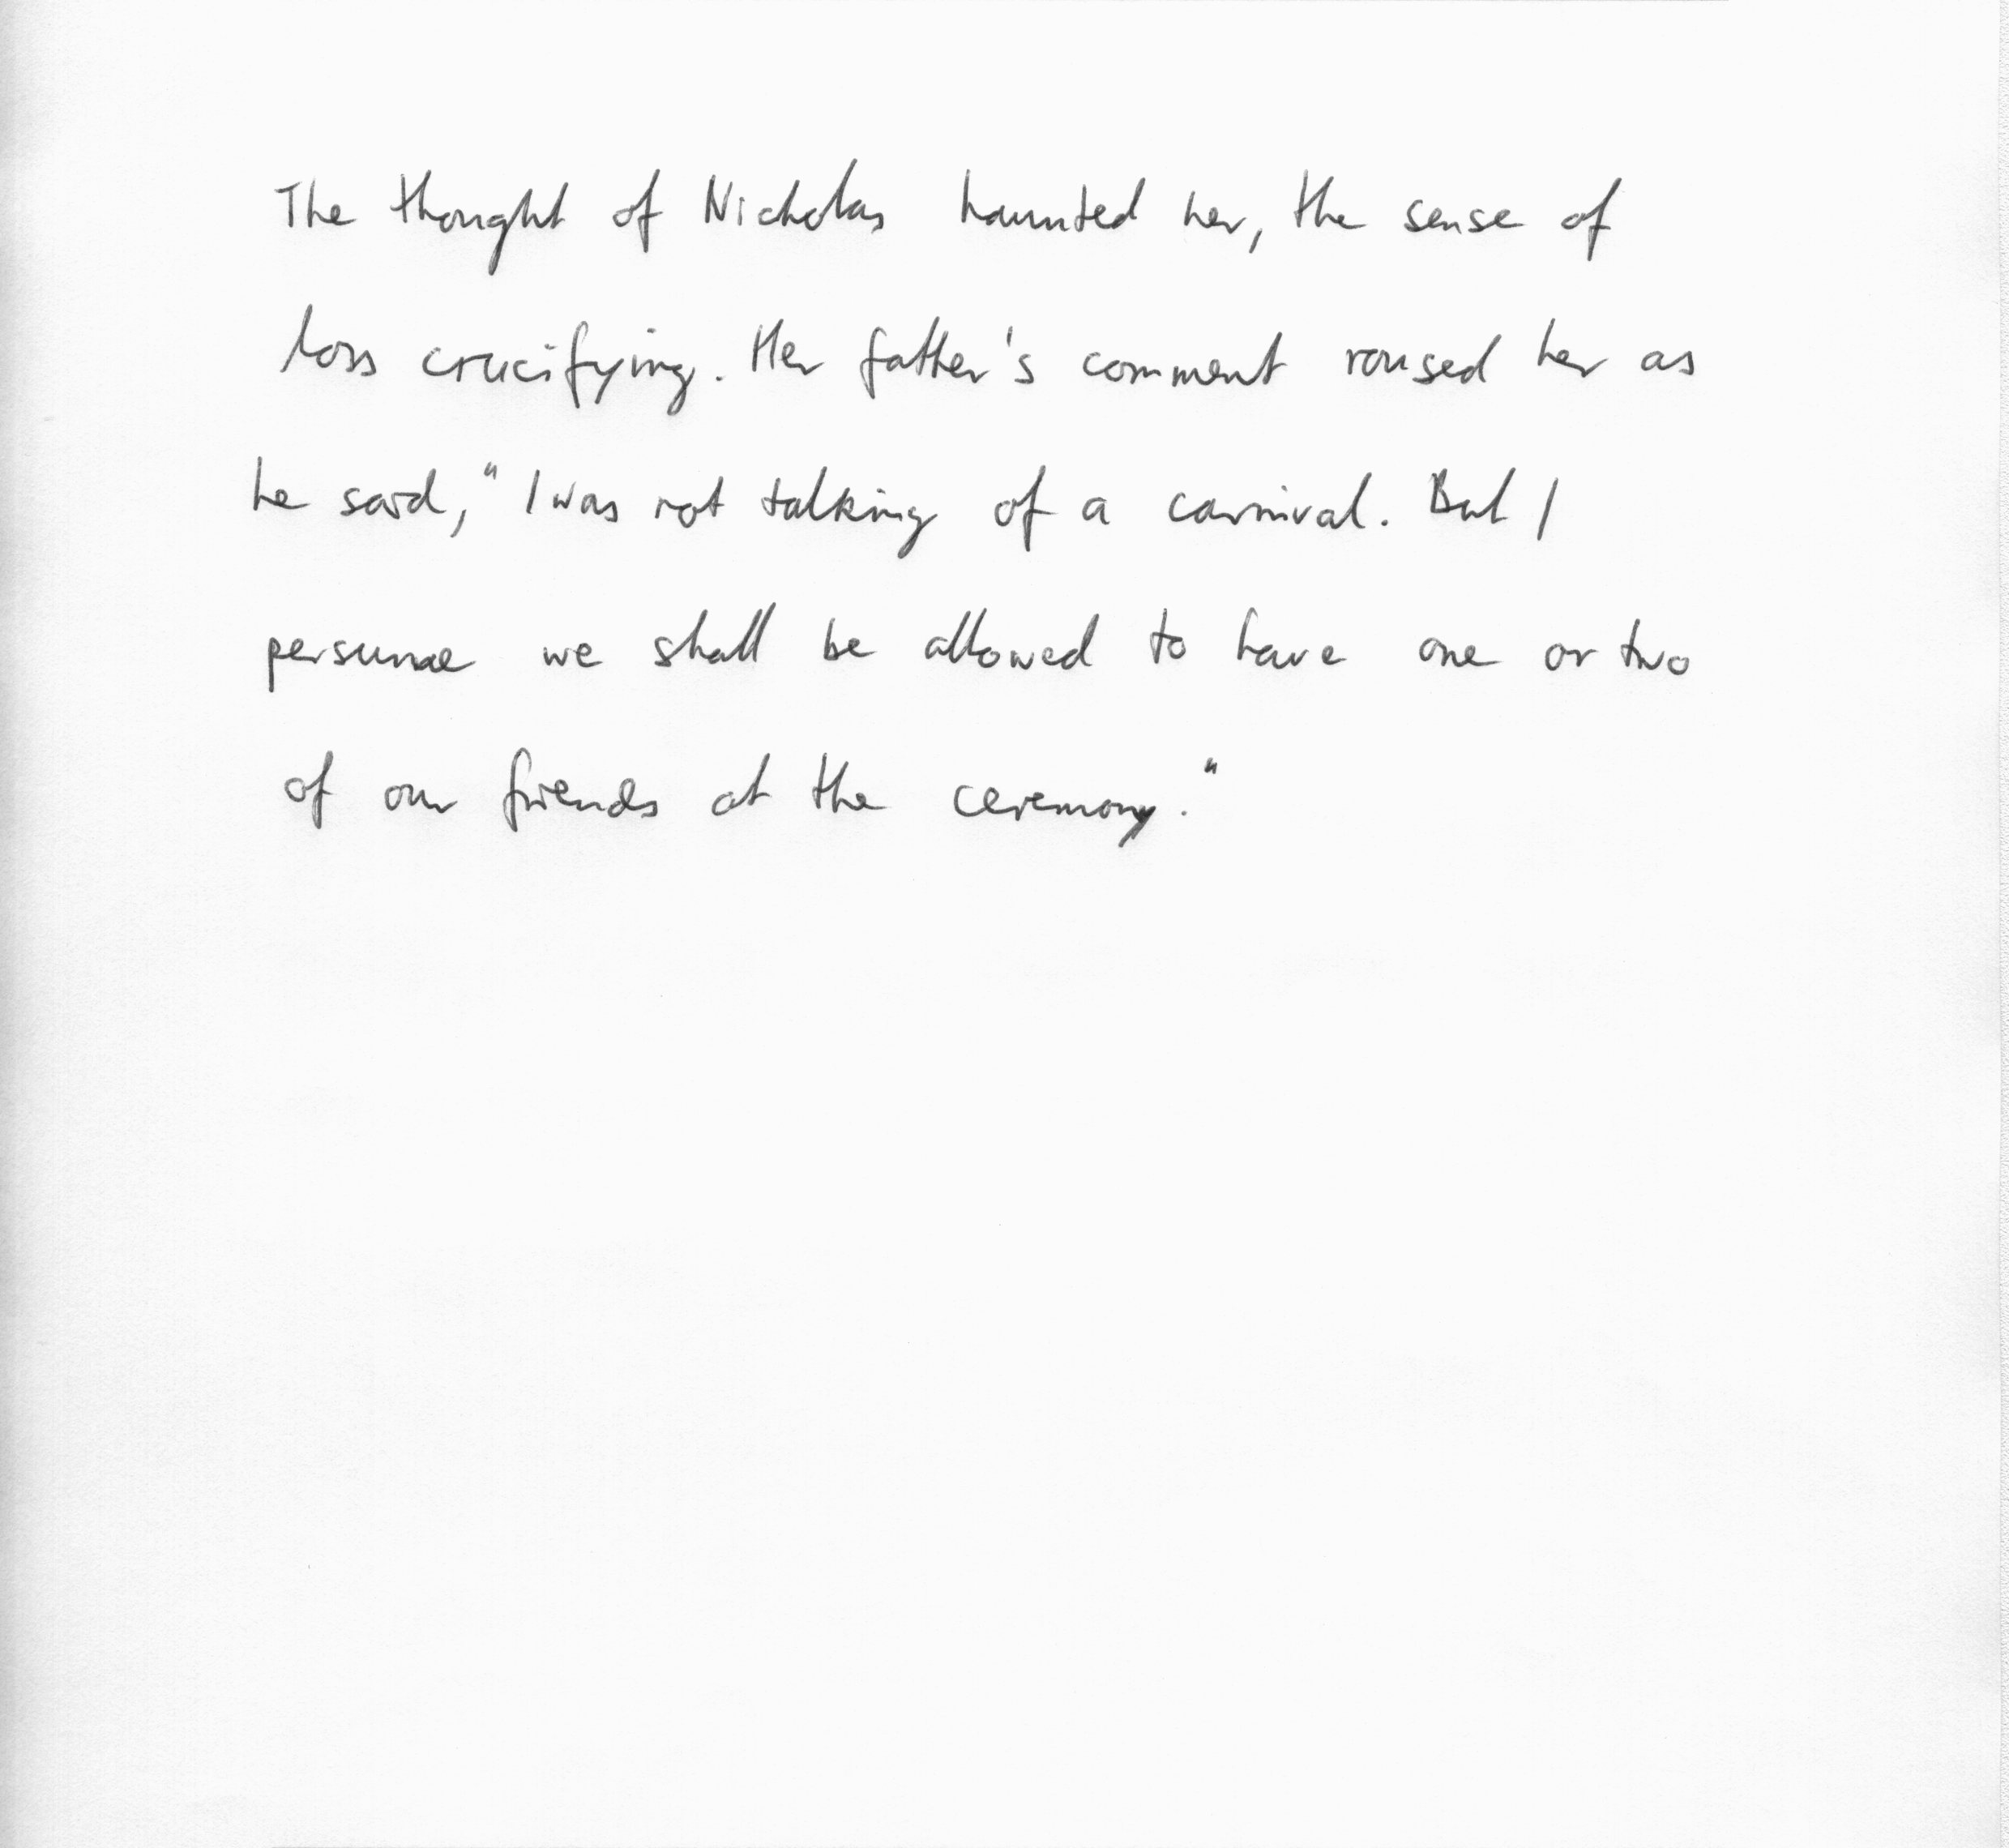 The thought of Nicholas haunted her, the sense of
loss crucifying. Her father's comment roused her as
he said, "I was not talking of a carnival. But I
persume we shall be allowed to have one or two
of our friends at the ceremony."